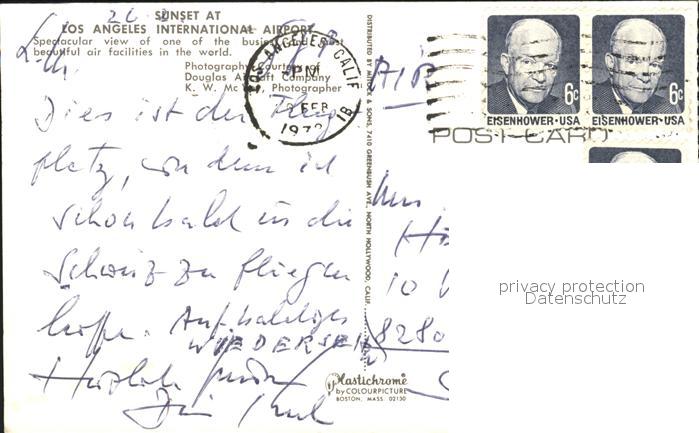 SUNSET AT
LOS ANGELES INTERNATIONAL AIRPORT
Spectacular view of one of the busiest and most
beautiful air facilities in the world.
Photography Courtesy of
Douglas Aircraft Company
K. W. Mc Photographer
Dies ist der Flug-
platz, von dem ich
schon bald in die
Schweiz zu fliegen
hoffe. Auf baldiges
WIEDERSEHEN
Herzlich
LOS ANGELES CALIF
PM
FEB
1972
DISTRIBUTED BY MITOCK & SONS, 7410 GREENBUSH AVE., NORTH HOLLYWOOD, CALIF.
Plastichrome
by COLOURPICTURE
BOSTON, MASS. 02130
AIR
6c
EISENHOWER·USA
6c
EISENHOWER·USA
POST CARD
10
8280
privacy protection
Datenschutz